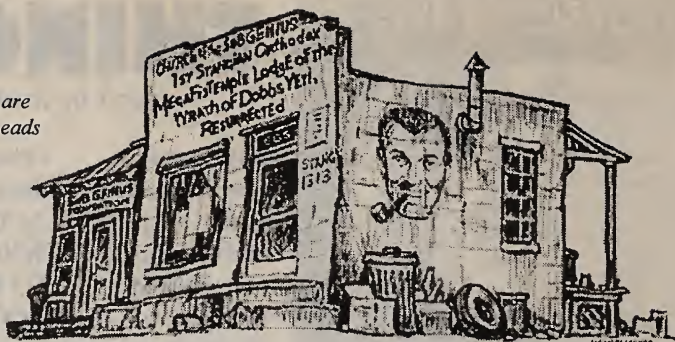 are
eads
CHURCH of the SUBGENIUS
1ST STANGIAN Orthodox
MEGAFISTEMPLE LODGE of the
WRATH OF DOBBS YETI,
RESURRECTED
SUBGENIUS
FOUNDATION
STANG
1313